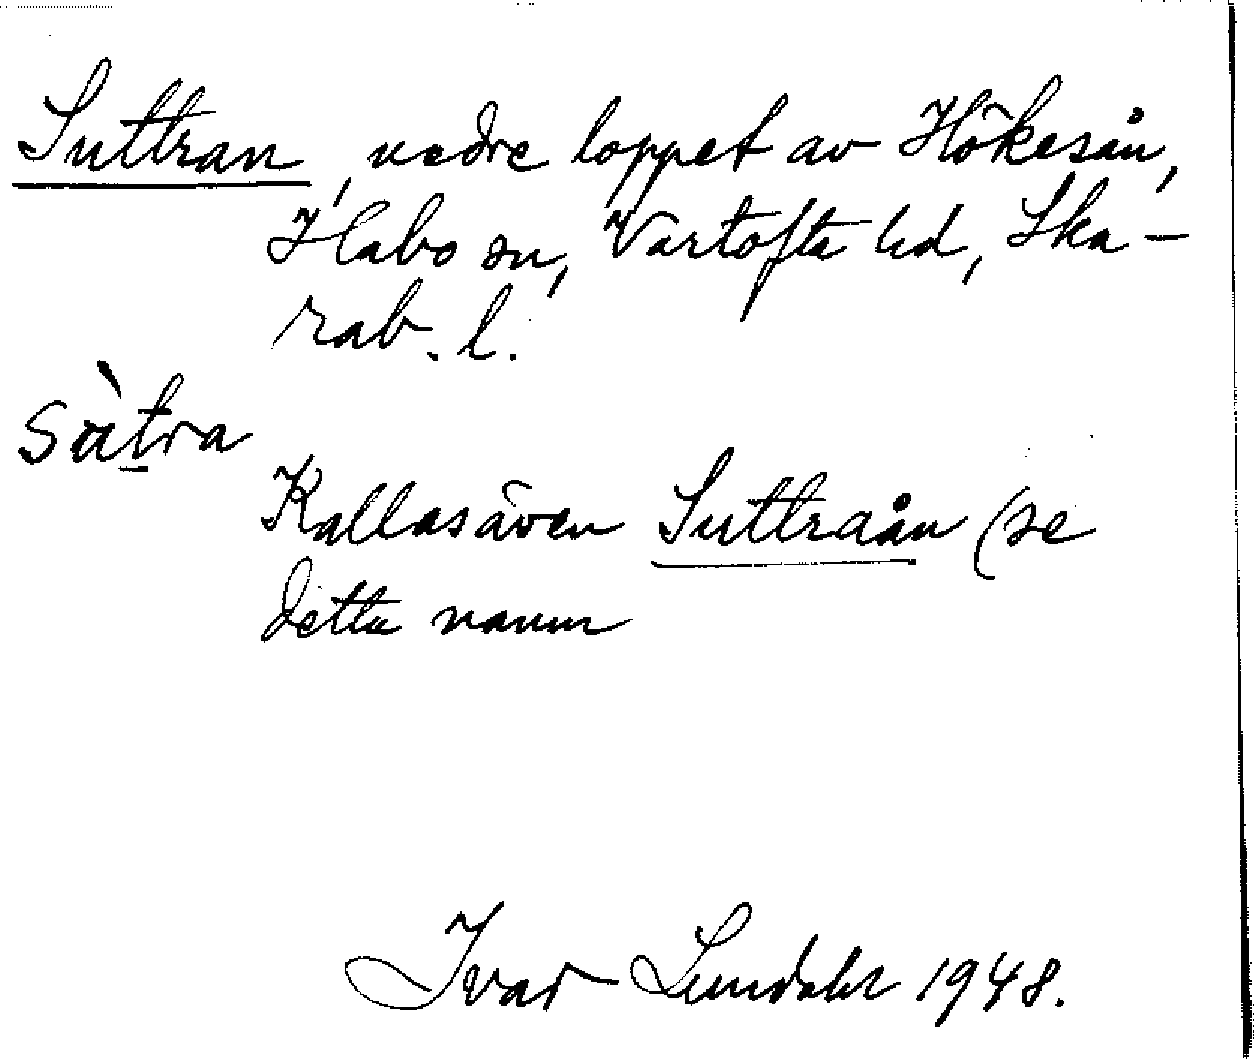 Suttran, nedre loppet av Hökesån,
Habo sn, Vartofta hd, Ska-
rab. l.
sùtra
Kallas även Suttraån (se
detta namn
Ivar Lundahl 1948.